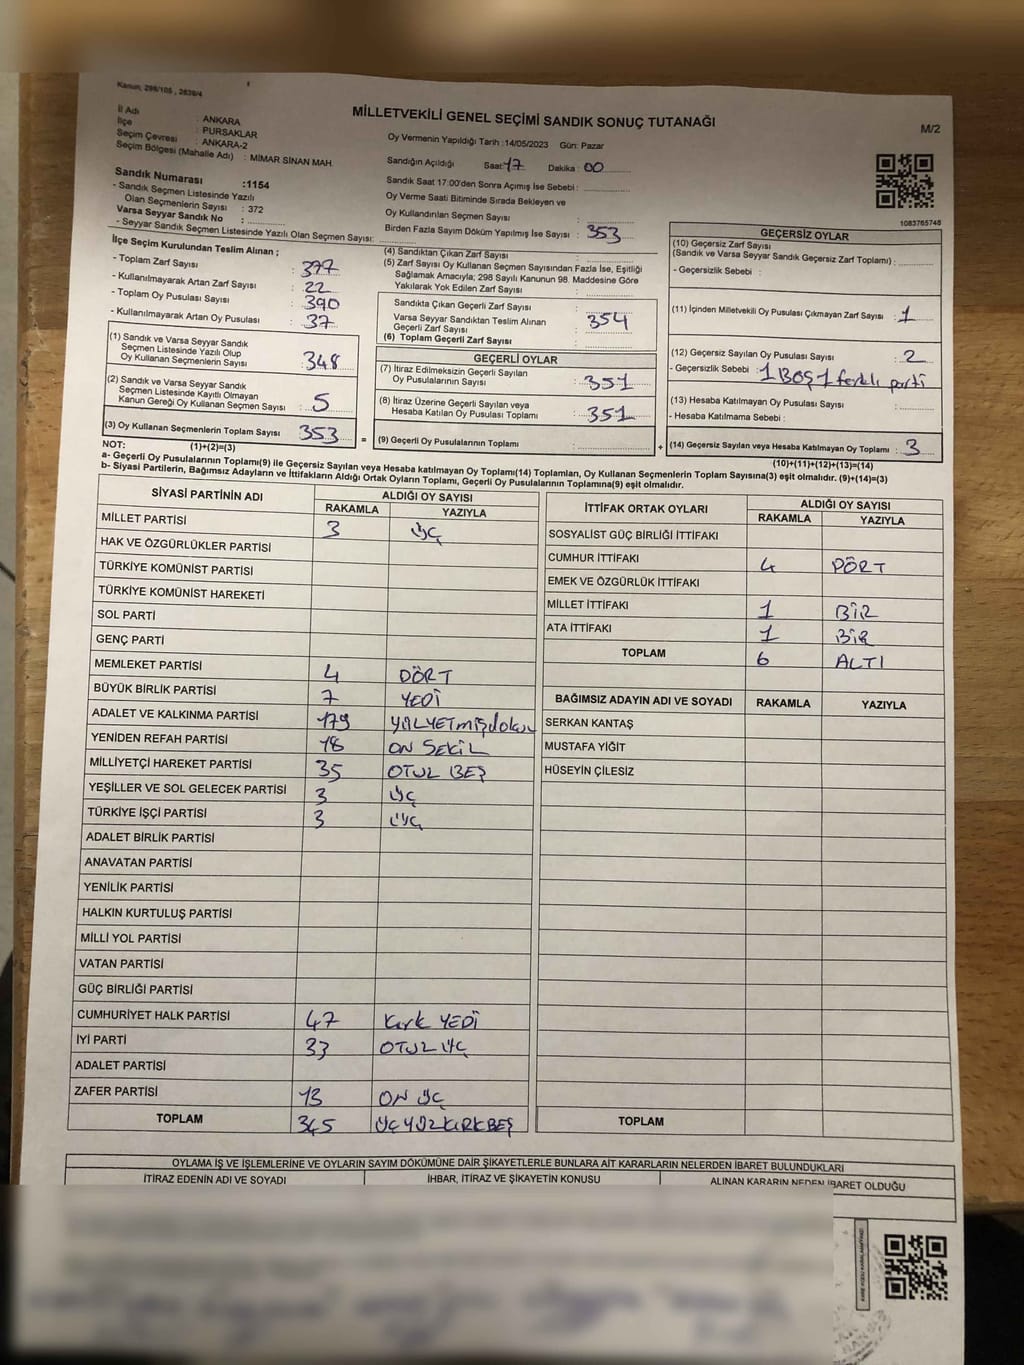 Kanun: 298/105 , 2839/4
MİLLETVEKİLİ GENEL SEÇİMİ SANDIK SONUÇ TUTANAĞI
M/2
İl Adı : ANKARA
İlçe : PURSAKLAR
Seçim Çevresi : ANKARA-2
Seçim Bölgesi (Mahalle Adı) : MİMAR SİNAN MAH.
Sandık Numarası :1154
- Sandık Seçmen Listesinde Yazılı
Olan Seçmenlerin Sayısı : 372
Varsa Seyyar Sandık No :
- Seyyar Sandık Seçmen Listesinde Yazılı Olan Seçmen Sayısı:
Oy Vermenin Yapıldığı Tarih :14/05/2023 Gün: Pazar
Sandığın Açıldığı Saat: 17 Dakika : 00
Sandık Saat 17:00'den Sonra Açımış İse Sebebi :
Oy Verme Saati Bitiminde Sırada Bekleyen ve
Oy Kullandırılan Seçmen Sayısı :
Birden Fazla Sayım Döküm Yapılmış İse Sayısı : 353
1083765748
İlçe Seçim Kurulundan Teslim Alınan ;
- Toplam Zarf Sayısı : 377
- Kullanılmayarak Artan Zarf Sayısı : 22
- Toplam Oy Pusulası Sayısı : 390
- Kullanılmayarak Artan Oy Pusulası : 37
(1) Sandık ve Varsa Seyyar Sandık
Seçmen Listesinde Yazılı Olup
Oy Kullanan Seçmenlerin Sayısı : 348
(2) Sandık ve Varsa Seyyar Sandık
Seçmen Listesinde Kayıtlı Olmayan
Kanun Gereği Oy Kullanan Seçmen Sayısı : 5
(3) Oy Kullanan Seçmenlerin Toplam Sayısı : 353
(1)+(2)=(3)
(4) Sandıktan Çıkan Zarf Sayısı :
(5) Zarf Sayısı Oy Kullanan Seçmen Sayısından Fazla İse, Eşitliği
Sağlamak Amacıyla; 298 Sayılı Kanunun 98. Maddesine Göre
Yakılarak Yok Edilen Zarf Sayısı :
Sandıkta Çıkan Geçerli Zarf Sayısı :
Varsa Seyyar Sandıktan Teslim Alınan
Geçerli Zarf Sayısı : 354
(6) Toplam Geçerli Zarf Sayısı :
GEÇERLİ OYLAR
(7) İtiraz Edilmeksizin Geçerli Sayılan
Oy Pusulalarının Sayısı : 351
(8) İtiraz Üzerine Geçerli Sayılan veya
Hesaba Katılan Oy Pusulası Toplamı : 351
= (9) Geçerli Oy Pusulalarının Toplamı :
GEÇERSİZ OYLAR
(10) Geçersiz Zarf Sayısı
(Sandık ve Varsa Seyyar Sandık Geçersiz Zarf Toplamı) :
- Geçersizlik Sebebi :
(11) İçinden Milletvekili Oy Pusulası Çıkmayan Zarf Sayısı : 1
(12) Geçersiz Sayılan Oy Pusulası Sayısı : 2
- Geçersizlik Sebebi : 1 BOŞ 1 farklı parti
(13) Hesaba Katılmayan Oy Pusulası Sayısı :
- Hesaba Katılmama Sebebi :
+ (14) Geçersiz Sayılan veya Hesaba Katılmayan Oy Toplamı : 3
(10)+(11)+(12)+(13)=(14)
NOT:
a- Geçerli Oy Pusulalarının Toplamı(9) ile Geçersiz Sayılan veya Hesaba katılmayan Oy Toplamı(14) Toplamları, Oy Kullanan Seçmenlerin Toplam Sayısına(3) eşit olmalıdır. (9)+(14)=(3)
b- Siyasi Partilerin, Bağımsız Adayların ve İttifakların Aldığı Ortak Oyların Toplamı, Geçerli Oy Pusulalarının Toplamına(9) eşit olmalıdır.
SİYASİ PARTİNİN ADI ALDIĞI OY SAYISI
RAKAMLA YAZIYLA
MİLLET PARTİSİ 3 ÜÇ
HAK VE ÖZGÜRLÜKLER PARTİSİ
TÜRKİYE KOMÜNİST PARTİSİ
TÜRKİYE KOMÜNİST HAREKETİ
SOL PARTİ
GENÇ PARTİ
MEMLEKET PARTİSİ 4 DÖRT
BÜYÜK BİRLİK PARTİSİ 7 YEDİ
ADALET VE KALKINMA PARTİSİ 179 YÜZYETmişdokuz
YENİDEN REFAH PARTİSİ 18 ON SEKİZ
MİLLİYETÇİ HAREKET PARTİSİ 35 OTUZ BEŞ
YEŞİLLER VE SOL GELECEK PARTİSİ 3 ÜÇ
TÜRKİYE İŞÇİ PARTİSİ 3 ÜÇ
ADALET BİRLİK PARTİSİ
ANAVATAN PARTİSİ
YENİLİK PARTİSİ
HALKIN KURTULUŞ PARTİSİ
MİLLİ YOL PARTİSİ
VATAN PARTİSİ
GÜÇ BİRLİĞİ PARTİSİ
CUMHURİYET HALK PARTİSİ 47 Kırk YEDİ
İYİ PARTİ 33 OTUZ ÜÇ
ADALET PARTİSİ
ZAFER PARTİSİ 13 ON ÜÇ
TOPLAM 345 ÜÇYÜZKIRKBEŞ
İTTİFAK ORTAK OYLARI ALDIĞI OY SAYISI
RAKAMLA YAZIYLA
SOSYALİST GÜÇ BİRLİĞİ İTTİFAKI
CUMHUR İTTİFAKI 4 DÖRT
EMEK VE ÖZGÜRLÜK İTTİFAKI
MİLLET İTTİFAKI 1 BİR
ATA İTTİFAKI 1 BİR
TOPLAM 6 ALTI
BAĞIMSIZ ADAYIN ADI VE SOYADI RAKAMLA YAZIYLA
SERKAN KANTAŞ
MUSTAFA YİĞİT
HÜSEYİN ÇİLESİZ
TOPLAM
OYLAMA İŞ VE İŞLEMLERİNE VE OYLARIN SAYIM DÖKÜMÜNE DAİR ŞİKAYETLERLE BUNLARA AİT KARARLARIN NELERDEN İBARET BULUNDUKLARI
İTİRAZ EDENİN ADI VE SOYADI İHBAR, İTİRAZ VE ŞİKAYETİN KONUSU ALINAN KARARIN NEDEN İBARET OLDUĞU